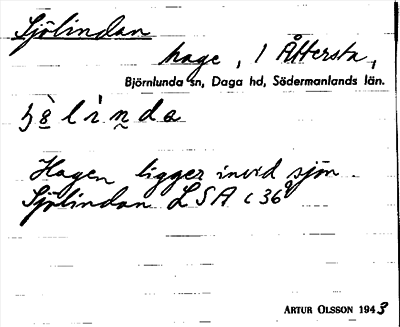 Sjölindan
hage, 1 Åttersta,
Björnlunda sn, Daga hd, Södermanlands län.
Hagen ligger invid sjön
Sjölindan LSA c 36
ARTUR OLSSON 1943